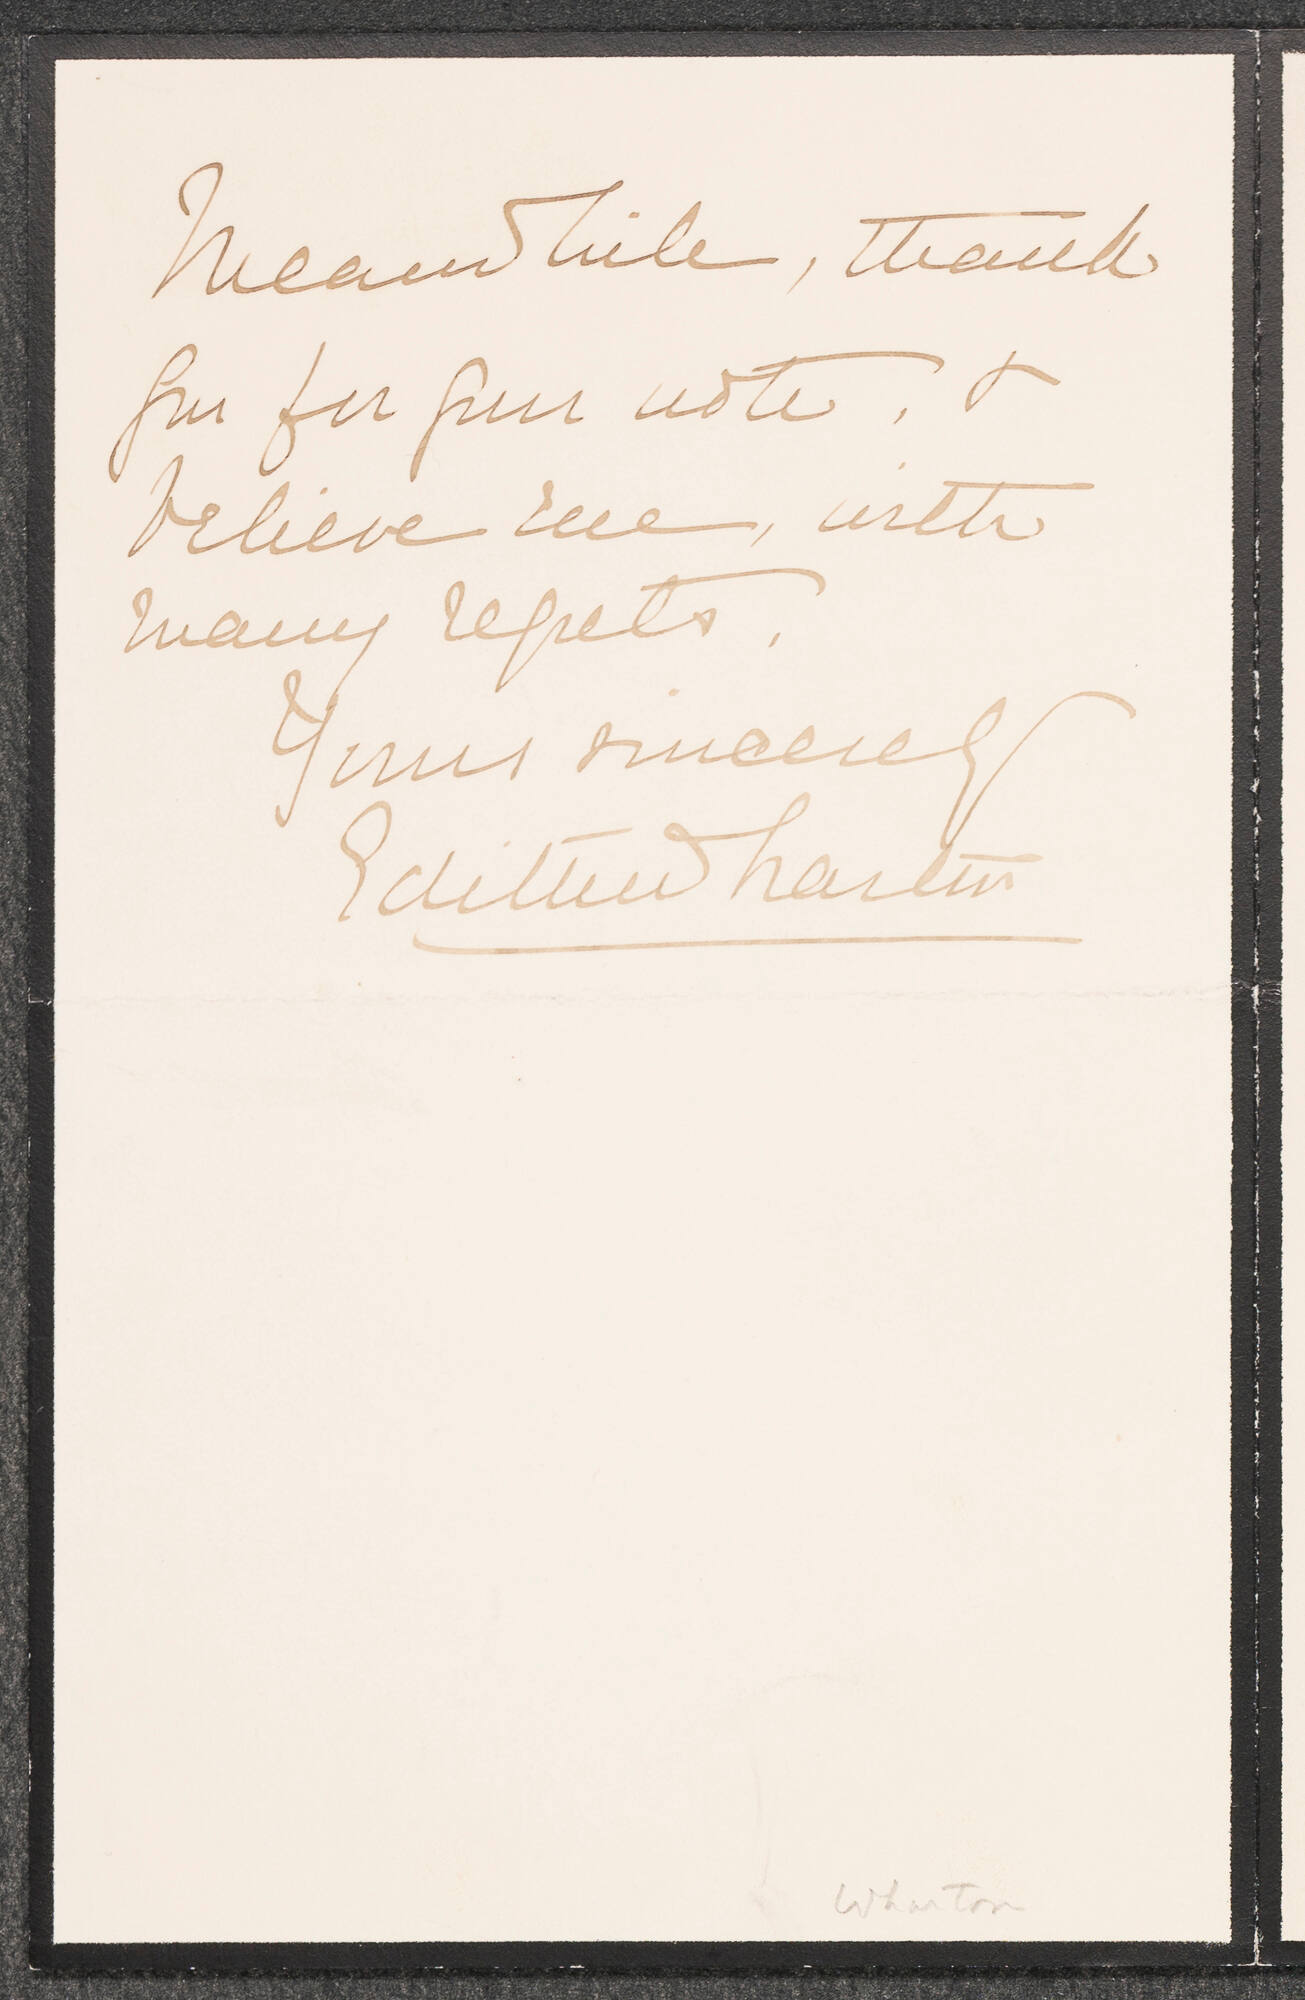 Meanwhile, thank
you for your note, &
believe me, with
many regrets,
Yours sincerely
Edith Wharton
Wharton